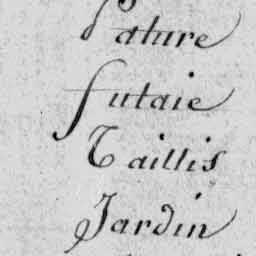 Pature
futaie
Taillis
Jardin